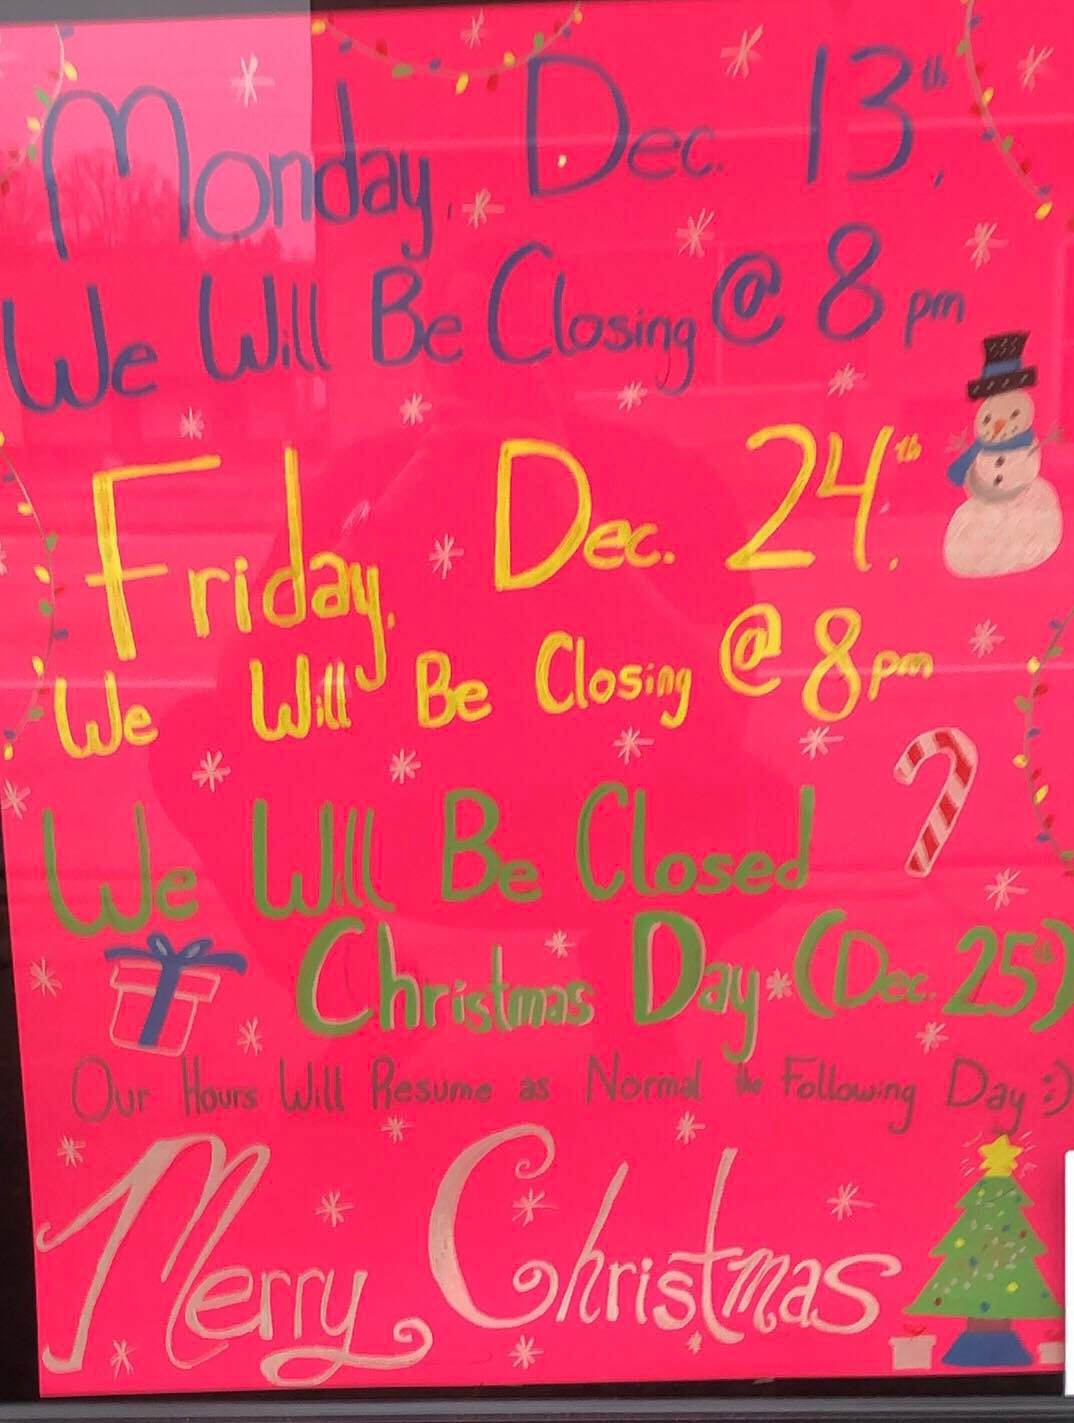 Monday, Dec. 13th,
We Will Be Closing @ 8 pm
Friday, Dec. 24th,
We Will Be Closing @ 8pm
We Will Be Closed
Christmas Day * (Dec. 25th)
Our Hours Will Resume as Normal the Following Day :)
Merry Christmas